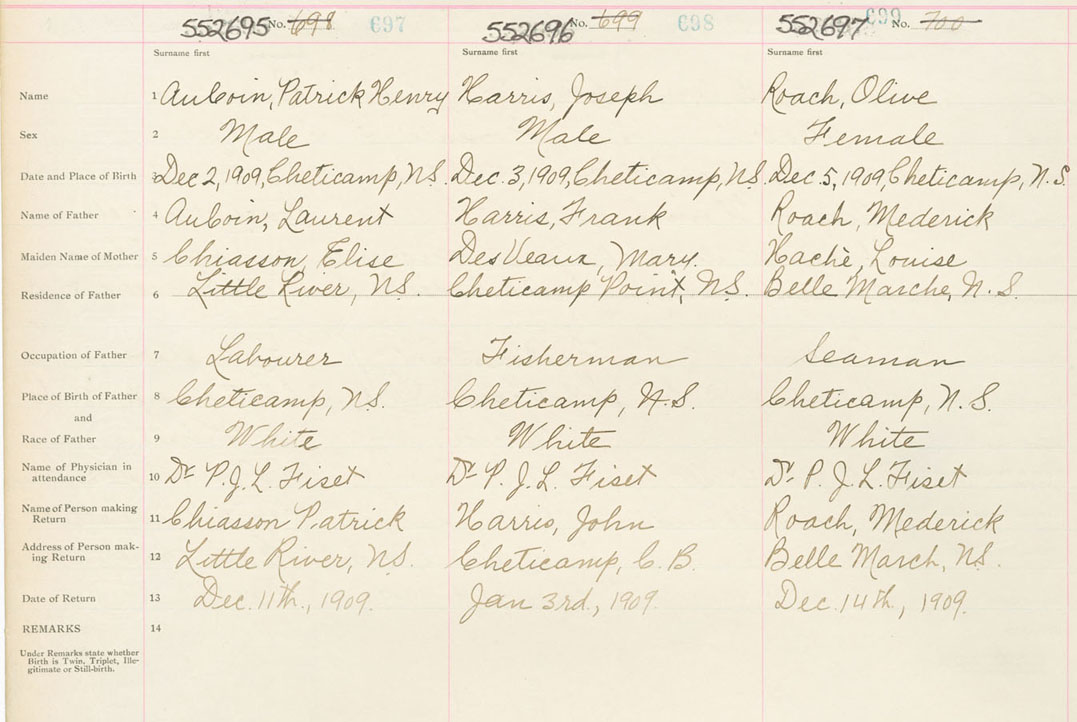 552695 No. 698 697 552696 No. 699 698 552697 699 No. 700
Surname first Surname first Surname first
Name 1 AuCoin, Patrick Henry Harris, Joseph Roach, Olive
Sex 2 Male Male Female
Date and Place of Birth 3 Dec 2, 1909, Cheticamp, N.S. Dec. 3, 1909, Cheticamp, N.S. Dec. 5, 1909, Cheticamp, N.S.
Name of Father 4 AuCoin, Laurent Harris, Frank Roach, Mederick
Maiden Name of Mother 5 Chiasson, Elise DesVeaux, Mary. Hachè, Louise
Residence of Father 6 Little River, N.S. Cheticamp Point, N.S. Belle Marche, N.S.
Occupation of Father 7 Labourer Fisherman Seaman
Place of Birth of Father 8 Cheticamp, N.S. Cheticamp, N.S. Cheticamp, N.S.
and
Race of Father 9 White White White
Name of Physician in
attendance 10 Dr P.J.L. Fiset Dr P.J.L. Fiset Dr P.J.L. Fiset
Name of Person making
Return 11 Chiasson Patrick Harris, John Roach, Mederick
Address of Person mak-
ing Return 12 Little River, N.S. Cheticamp, C.B. Belle March, N.S.
Date of Return 13 Dec. 11th., 1909. Jan 3rd., 1909. Dec. 14th., 1909.
REMARKS 14
Under Remarks state whether
Birth is Twin, Triplet, Ille-
gitimate or Still-birth.